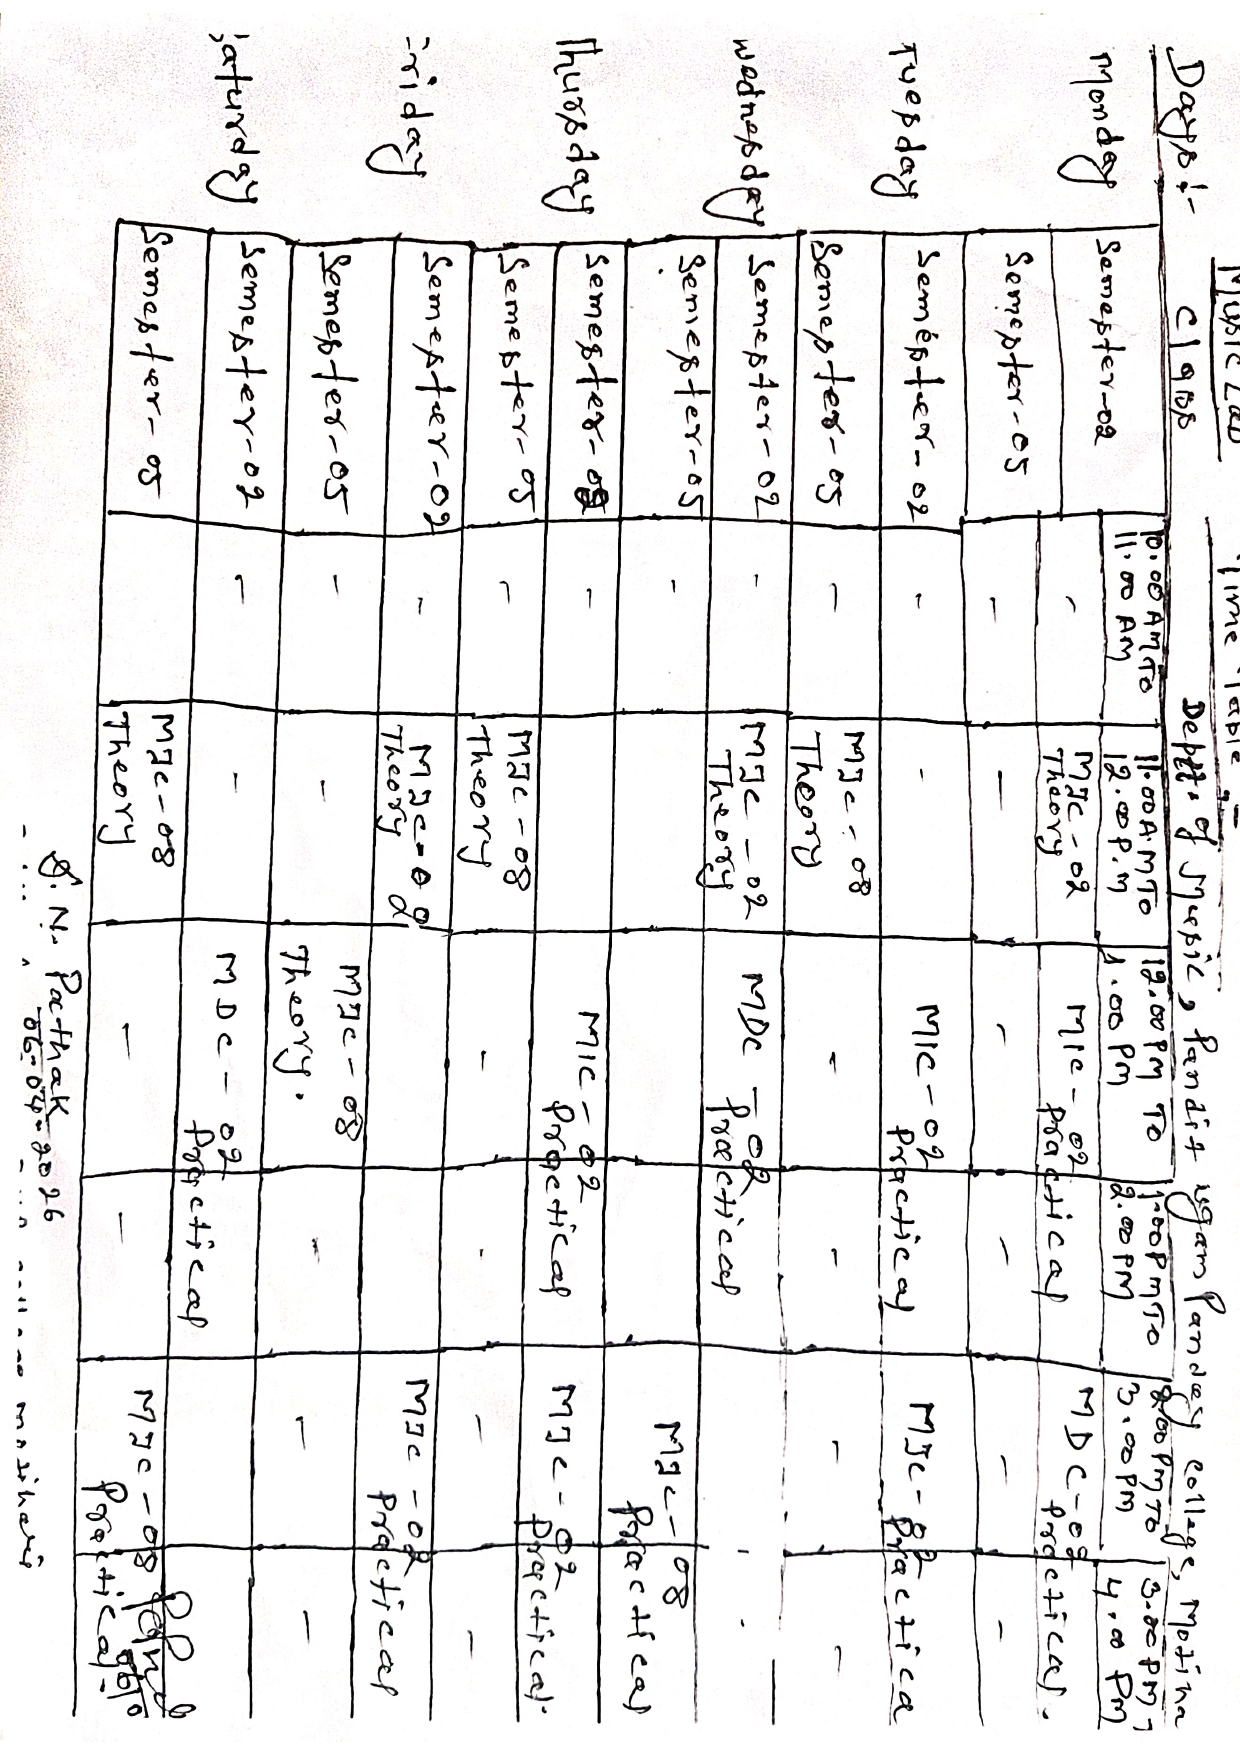 Music Lab Time Table :-
Days :- Class Deptt. of Music, Pandit Ugam Panday College, Motiha
10.00 AM To 11.00 AM 11.00 AM To 12.00 P.M 12.00 PM To 1.00 PM 1.00 PM To 2.00 PM 2.00 PM To 3.00 PM 3.00 PM 4.00 PM
Monday Semester-02 - MJC-02 Theory MIC-02 Practical MDC-02 Practical.
Semester-05 - - - - - -
Tuesday Semester-02 - - MIC-02 Practical MJC-02 Practica
Semester-05 - MJC-08 Theory - - - -
Wednesday Semester-02 - MJC-02 Theory MDC-02 Practical - -
Semester-05 - MJC-08 Practical
Thursday Semester-02 - MIC-02 Practical MJC-02 Practical.
Semester-05 - MJC-08 Theory - - - -
Friday Semester-02 - MJC-02 Theory MJC-02 Practical
Semester-05 - - MJC-08 Theory. - - -
Saturday Semester-02 - - MDC-02 Practical
Semester-05 MJC-08 Theory - - MJC-08 Practical
S.N. Pathak
06-04-2026